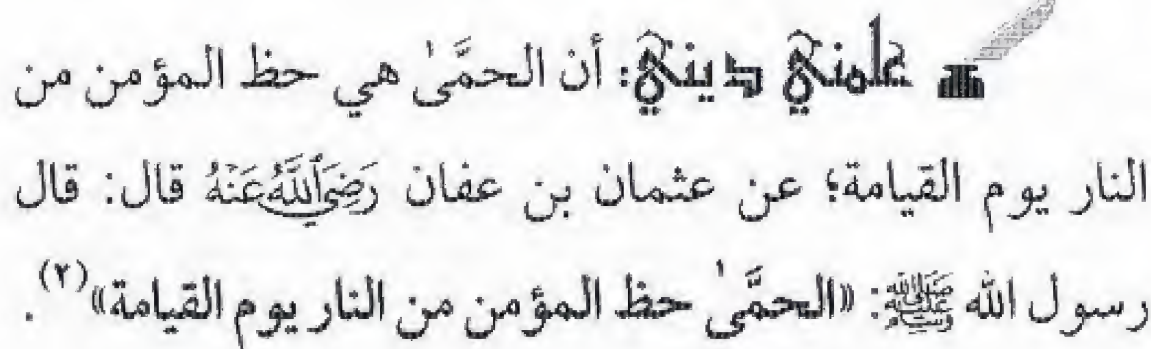 علمني ديني: أن الحمَّىٰ هي حظ المؤمن من
النار يوم القيامة؛ عن عثمان بن عفان رَضِيَٱللَّهُعَنْهُ قال: قال
رسول الله ﷺ: «الحمَّىٰ حظ المؤمن من النار يوم القيامة»(٢).